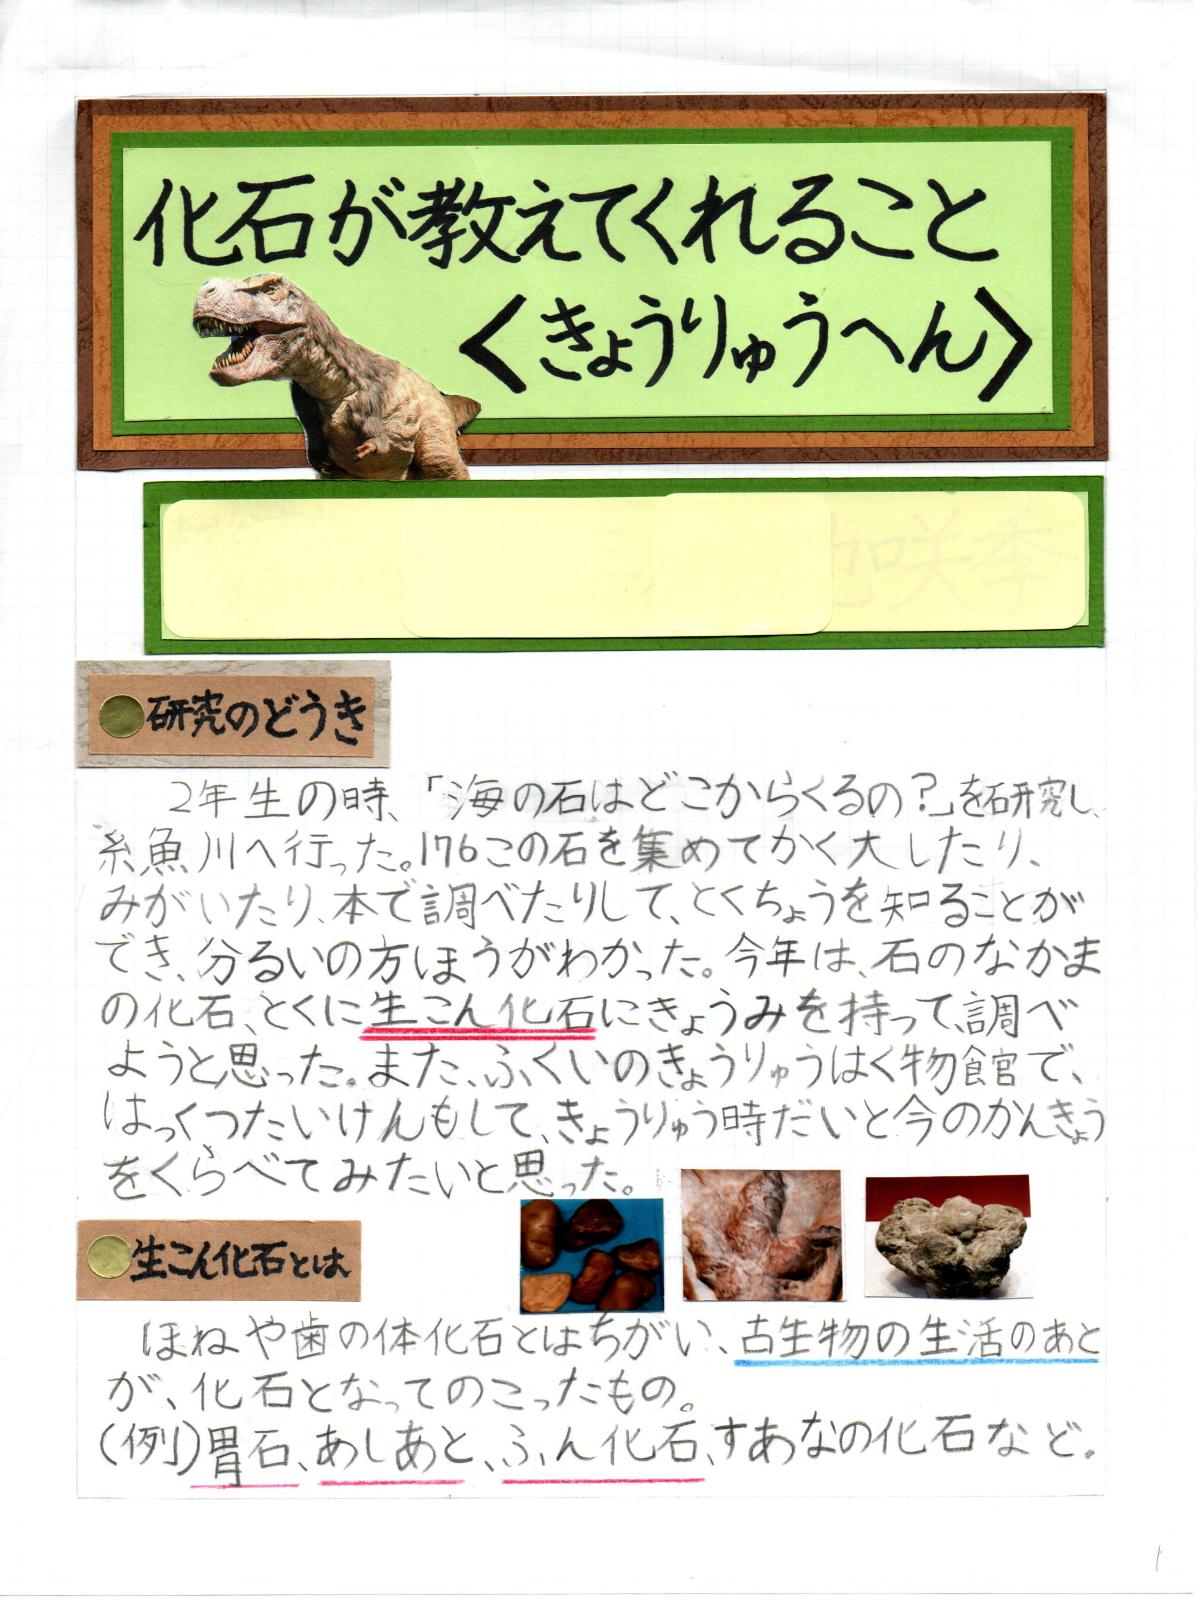 化石が教えてくれること
〈きょうりゅうへん〉
研究のどうき
2年生の時、「海の石はどこからくるの?」を研究し、
糸魚川へ行った。176この石を集めてかく大したり、
みがいたり、本で調べたりして、とくちょうを知ることが
でき、分るいの方ほうがわかった。今年は、石のなかま
の化石、とくに生こん化石にきょうみを持って、調べ
ようと思った。また、ふくいのきょうりゅうはく物館で、
はっくつたいけんもして、きょうりゅう時だいと今のかんきょう
をくらべてみたいと思った。
生こん化石とは
ほねや歯の体化石とはちがい、古生物の生活のあと
が、化石となってのこったもの。
(例)胃石、あしあと、ふん化石、すあなの化石など。
1